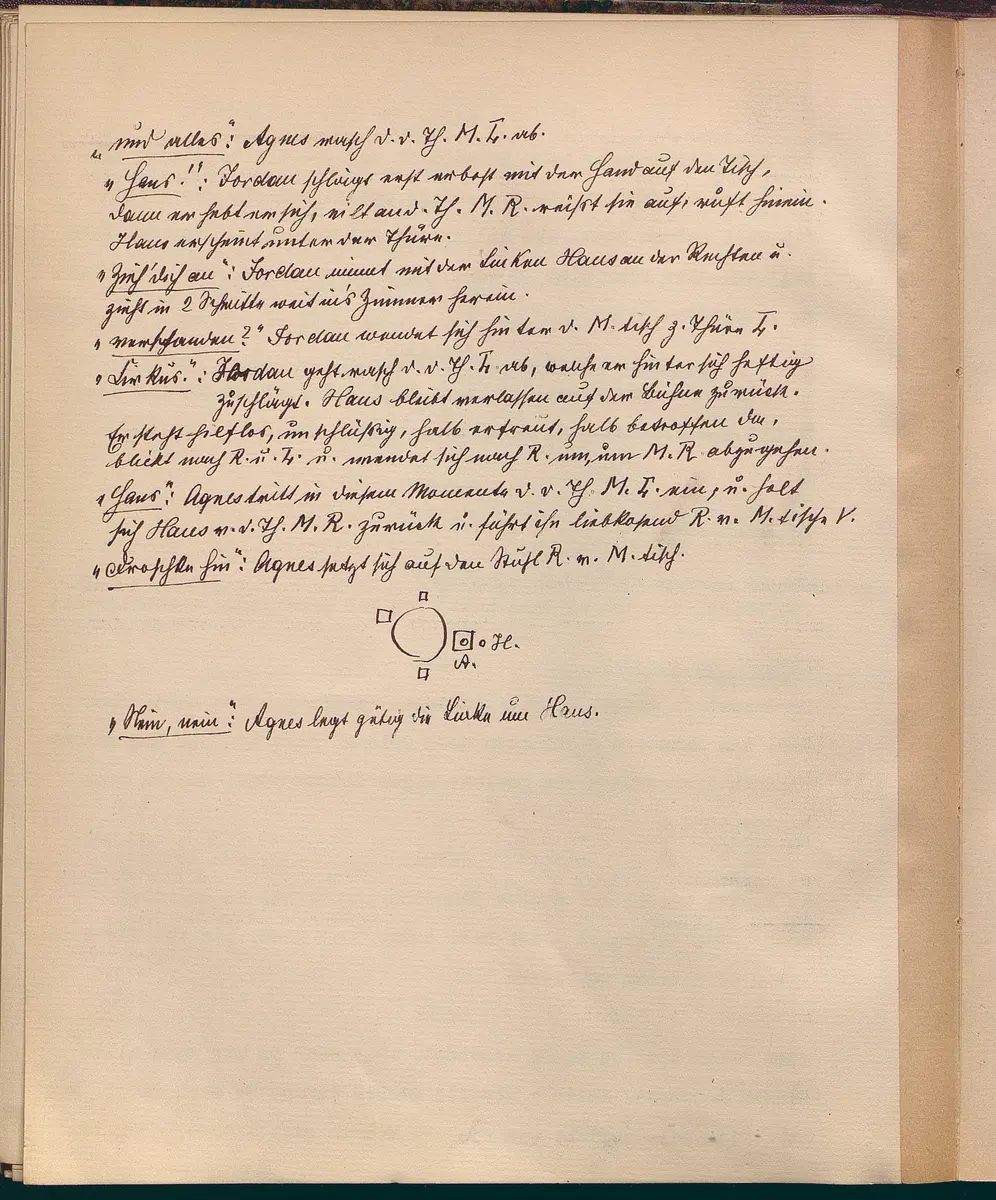 „und alles": Agnes rasch d. d. Th. M. L. ab.
„Hans!": Jordan schlägt erst erbost mit der Hand auf den Tisch,
dann erhebt er sich, eilt an d. Th. M. R. reißt sie auf, ruft hinein.
Hans erscheint unter der Thüre.
„Zieh' dich an": Jordan nimmt mit der Linken Hans an der Rechten u.
zieht in 2 Schritte weit in's Zimmer herein.
„verstanden?" Jordan wendet sich hinter d. M. tisch z. Thüre L.
„Cirkus.": Jordan geht rasch d. d. Th. L ab, welche er hinter sich heftig
zuschlägt. Hans bleibt verlassen auf der Bühne zurück.
Er steht hilflos, unschlüßig, halb erfreut, halb betroffen da,
blickt nach R. u. L. u. wendet sich nach R. um, um M. R. abzugehen.
„Hans": Agnes tritt in diesem Momente d. d. Th. M. L. ein, u. holt
sich Hans v. d. Th. M. R. zurück u. führt ihn liebkosend R. v. M. tische V.
„Droschke hin": Agnes setzt sich auf den Stuhl R. v. M. tisch.
H.
A.
„Nein, nein": Agnes legt gütig die Linke um Hans.